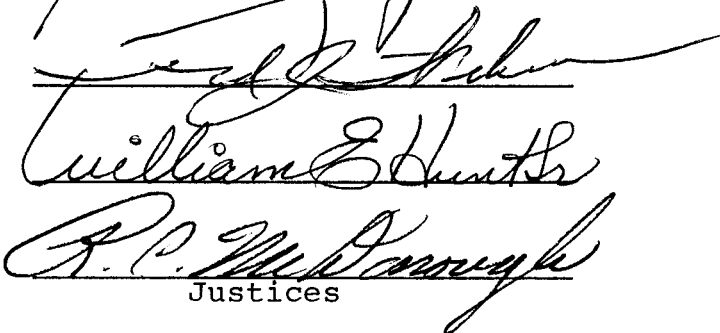 William E Hunt Sr
R. C. McDonough
Justices